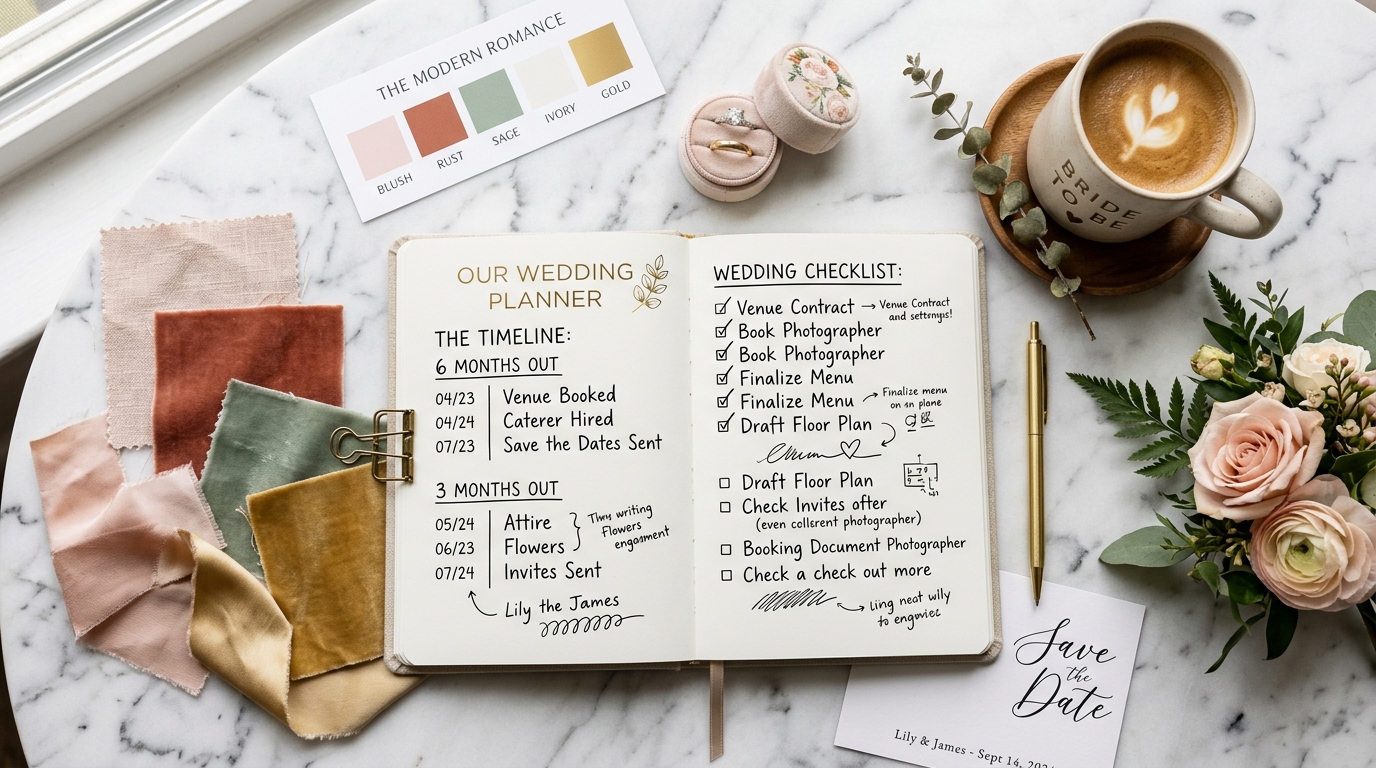 THE MODERN ROMANCE
BLUSH
RUST
SAGE
IVORY
GOLD
BRIDE
TO BE
OUR WEDDING
PLANNER
THE TIMELINE:
6 MONTHS OUT
04/23 Venue Booked
04/24 Caterer Hired
07/23 Save the Dates Sent
3 MONTHS OUT
05/24 Attire
06/23 Flowers
07/24 Invites Sent
writing
Flowers
Lily the James
WEDDING CHECKLIST:
Venue Contract
Venue Contract
and
Book Photographer
Book Photographer
Finalize Menu
Finalize Menu
Finalize menu
on
Draft Floor Plan
Draft Floor Plan
Check Invites
(even photographer)
Booking Document Photographer
Check a check out more
to
Save
the
Date
Lily & James - Sept